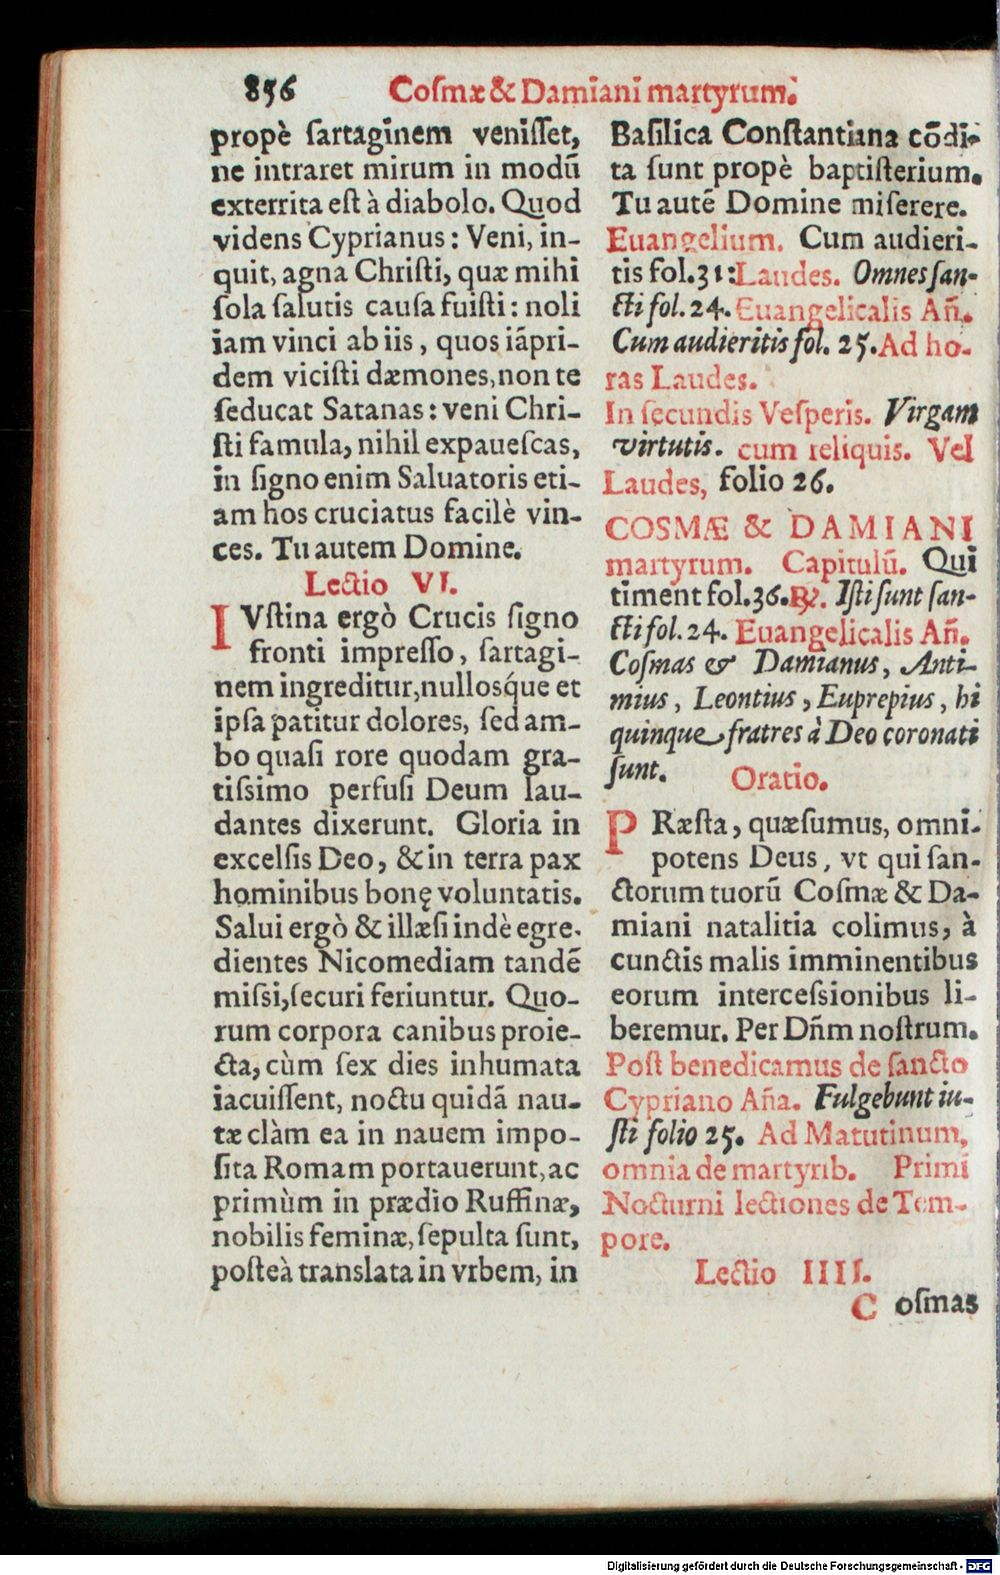 856 Coſmæ & Damiani martyrum.
propè ſartaginem veniſſet,
ne intraret mirum in modũ
exterrita eſt à diabolo. Quod
videns Cyprianus: Veni, in-
quit, agna Chriſti, quæ mihi
ſola ſalutis cauſa fuiſti: noli
iam vinci ab iis, quos iãpri-
dem viciſti dæmones, non te
ſeducat Satanas: veni Chri-
ſti famula, nihil expaueſcas,
in ſigno enim Saluatoris eti-
am hos cruciatus facilè vin-
ces. Tu autem Domine.
Lectio VI.
IVſtina ergò Crucis ſigno
fronti impreſſo, ſartagi-
nem ingreditur, nullosq́ue et
ipſa patitur dolores, ſed am-
bo quaſi rore quodam gra-
tiſſimo perfuſi Deum lau-
dantes dixerunt. Gloria in
excelſis Deo, & in terra pax
hominibus bonę voluntatis.
Salui ergò & illæſi indè egre-
dientes Nicomediam tandẽ
miſſi, ſecuri feriuntur. Quo-
rum corpora canibus proie-
cta, cùm ſex dies inhumata
iacuiſſent, noctu quidã nau-
tæ clàm ea in nauem impo-
ſita Romam portauerunt, ac
primùm in prædio Ruffinæ,
nobilis feminæ, ſepulta ſunt,
poſteà translata in vrbem, in
Baſilica Conſtantiana cõdi-
ta ſunt propè baptiſterium.
Tu autẽ Domine miſerere.
Euangelium. Cum audieri-
tis fol. 31: Laudes. Omnes ſan-
cti fol. 24. Euangelicalis Añ.
Cum audieritis fol. 25. Ad ho-
ras Laudes.
In ſecundis Veſperis. Virgam
virtutis. cum reliquis. Vel
Laudes, folio 26.
COSMÆ & DAMIANI
martyrum. Capitulũ. Qui
timent fol. 36. ℟. Iſti ſunt ſan-
cti fol. 24. Euangelicalis Añ.
Coſmas & Damianus, Anti-
mius, Leontius, Euprepius, hi
quinque fratres à Deo coronati
ſunt. Oratio.
PRæſta, quæſumus, omni-
potens Deus, vt qui ſan-
ctorum tuorũ Coſmæ & Da-
miani natalitia colimus, à
cunctis malis imminentibus
eorum interceſſionibus li-
beremur. Per Dñm noſtrum.
Poſt benedicamus de ſancto
Cypriano Aña. Fulgebunt iu-
ſti folio 25. Ad Matutinum,
omnia de martyrib. Primi
Nocturni lectiones de Tem-
pore.
Lectio IIII.
C oſmas
Digitalisierung gefördert durch die Deutsche Forschungsgemeinschaft - DFG